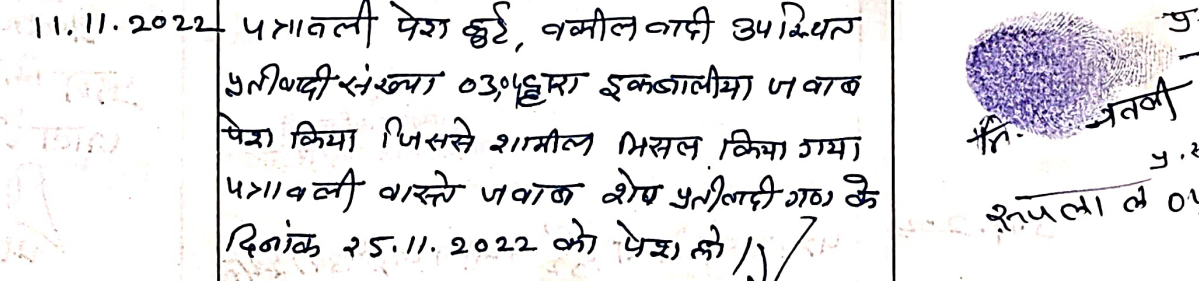 11.11.2022 पत्रावली पेश हुई, वकील वादी उपस्थित
प्रतीवादी संख्या 03,04 द्वारा इकबालीया जवाब
पेश किया जिससे शामील मिसल किया गया
पत्रावली वास्ते जवाब शेष प्रतीवादी गण के
दिनांक 25.11.2022 को पेश हो
नि.